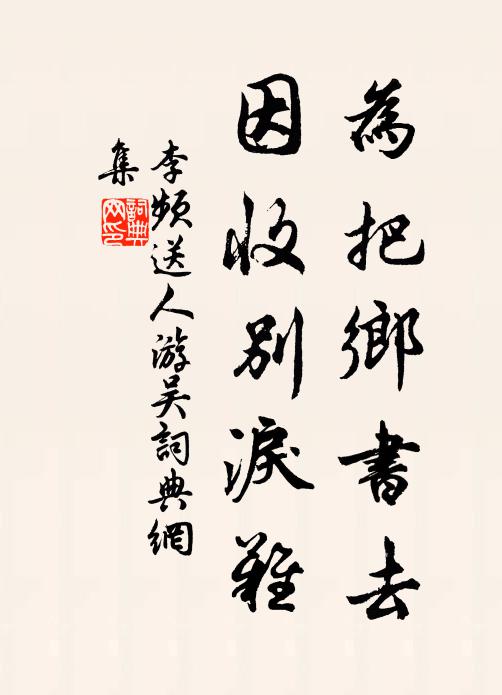 為把鄉書去
因收別淚難
李頻送人游吴詞典網
集
詞典網印